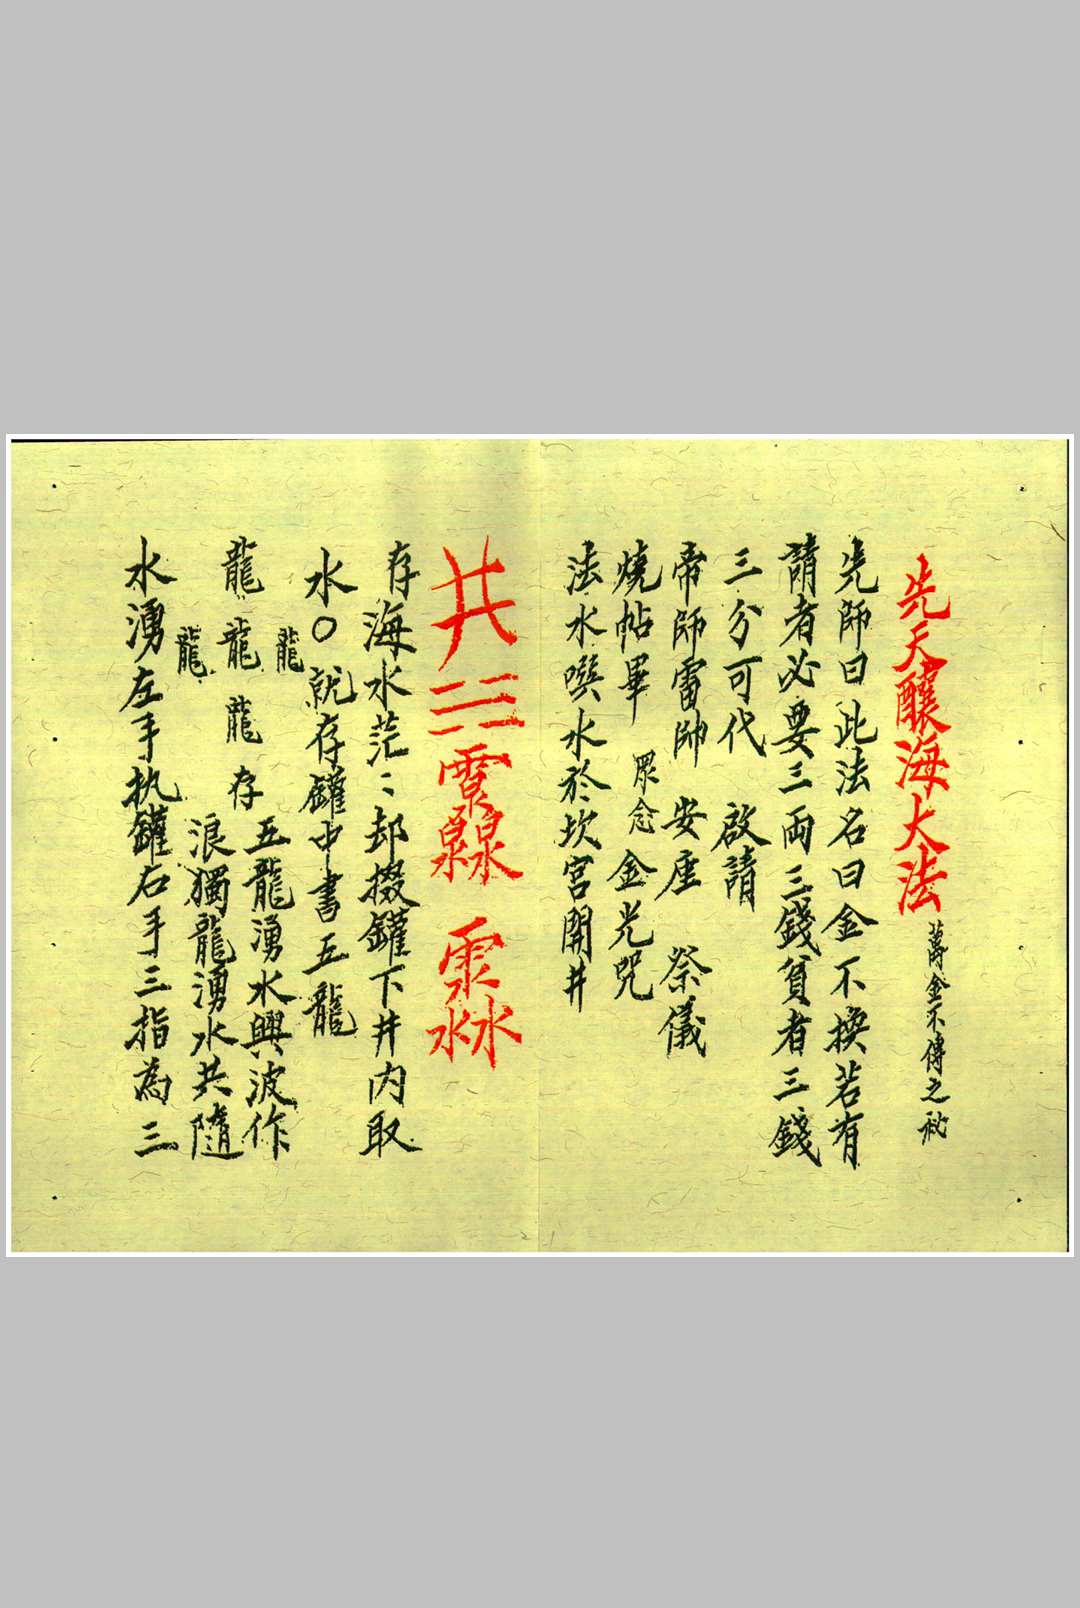 先天釀海大法 萬金不傳之秘
先師曰此法名曰金不換若有
請者必要三両三錢貧者三錢
三分可代 啟請
帝師雷帥 安座 祭儀
燒帖畢 眾念金光咒
法水噀水於坎宮開井
共
存海水茫〻却掇罐下井內取
水〇就存罐中書五龍
龍
龍 龍 龍
龍
存五龍湧水興波作
浪獨龍湧水共隨
水湧左手执罐右手三指為三